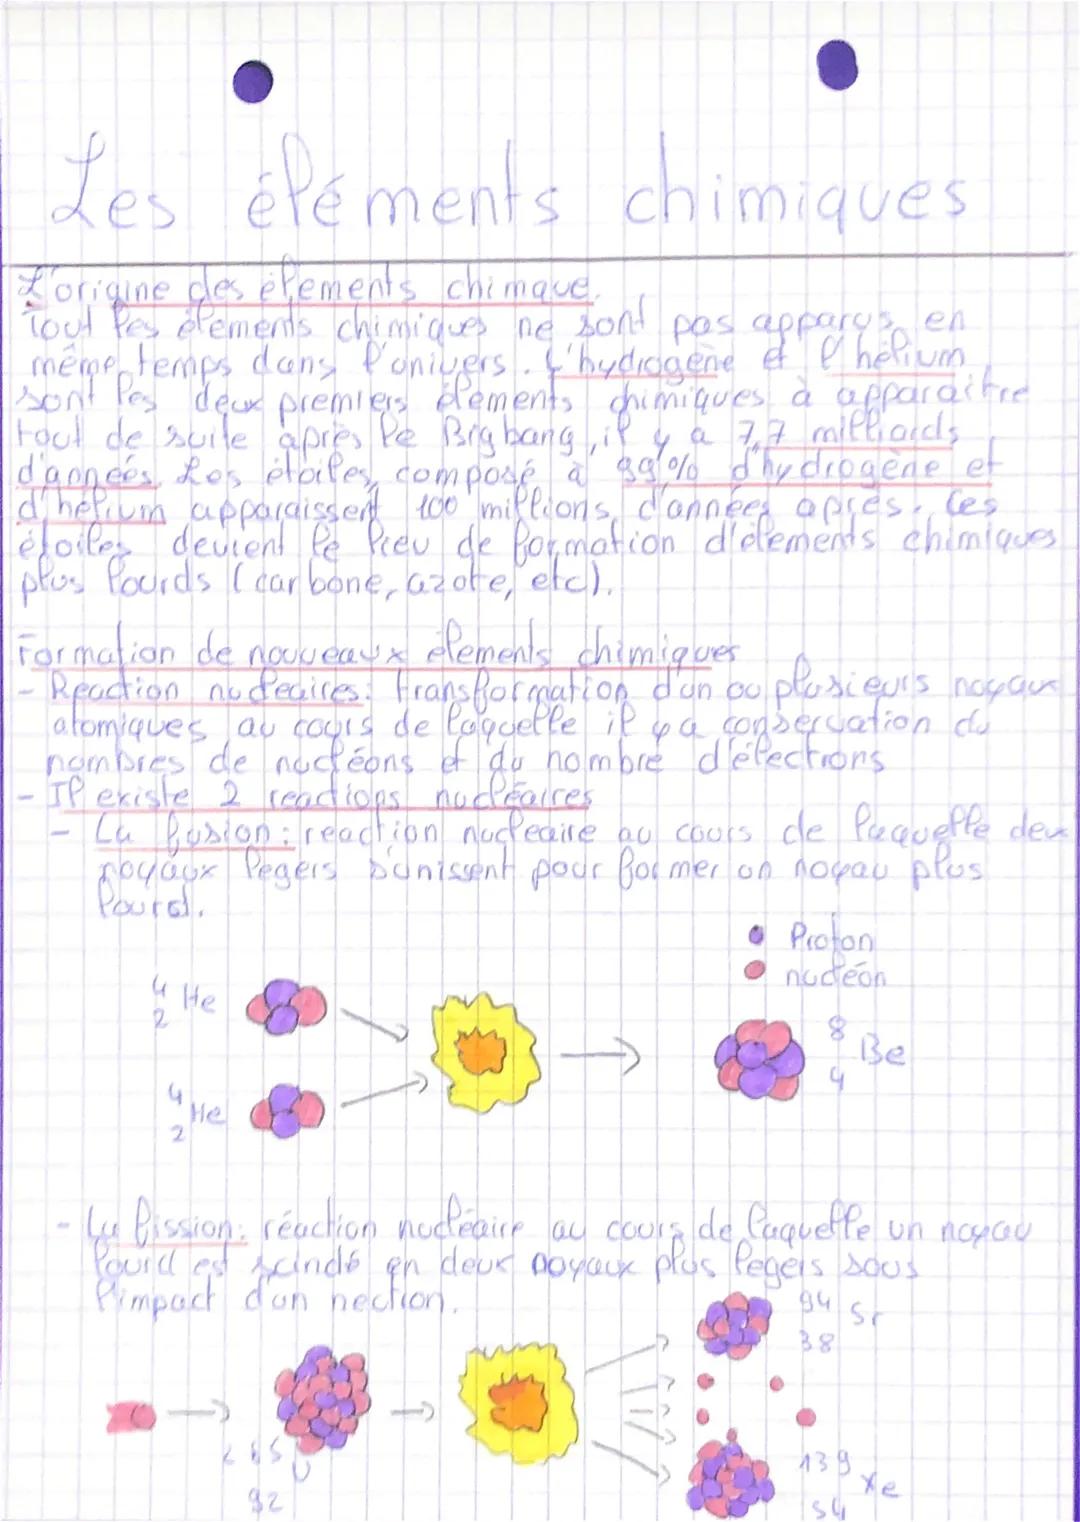 Les éléments chimiques
L'origine des élements chimque.
Tout les élements chimiques ne sont pas apparus en
même temps dans l'univers. L'hydrogène et l'hélium
sont les deux premiers élements chimiques à apparaître
tout de suite après le Bigbang, il y a 7,7 milliards
d'années. Les étoiles, composé à 99% d'hydrogène et
d'hélium apparaissent 100 millions d'années après. Ces
étoiles devient le lieu de formation d'élements chimiques
plus lourds (carbone, azote, etc).
Formation de nouveaux élements chimiques
- Reaction nucleaires: transformation d'un ou plusieurs noyaux
atomiques au cours de laquelle il y a conservation du
nombres de nucléons et du nombre d'électrons
- Il existe 2 reactions nucléaires
- La fusion: reaction nucleaire au cours de laquelle deux
noyaux legers s'unissent pour former un noyau plus
lourd.
Proton
nucléon
4
2 He
8
4 Be
4
2 He
- La fission: réaction nucléaire au cours de laquelle un noyau
lourd est scindé en deux noyaux plus legers sous
l'impact d'un nection.
94 Sr
38
U
92
139 Xe
54